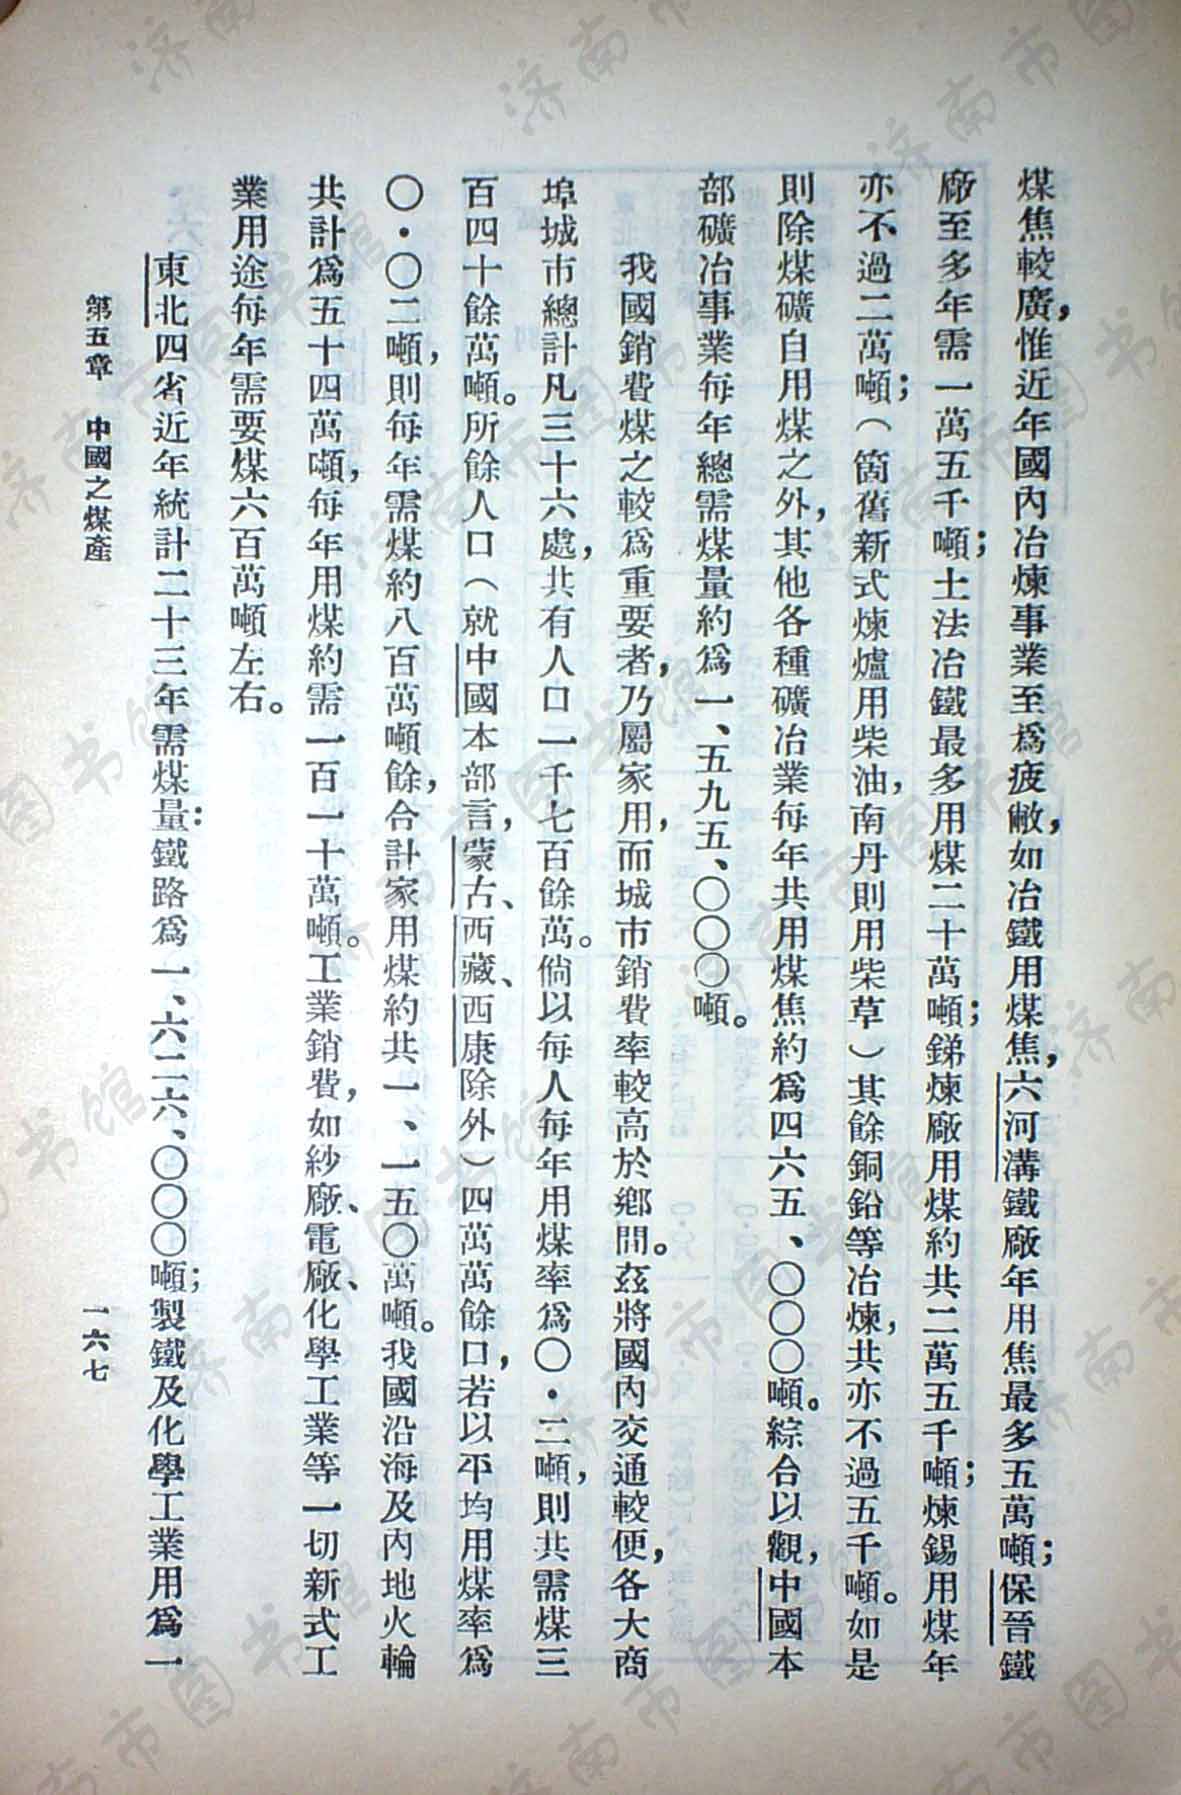 煤焦較廣，惟近年國內冶煉事業至爲疲敝，如冶鐵用煤焦，六河溝鐵廠年用焦最多五萬噸；保晉鐵
廠至多年需一萬五千噸；土法冶鐵最多用煤二十萬噸；銻煉廠用煤約共二萬五千噸；煉錫用煤年
亦不過二萬噸；（箇舊新式煉爐用柴油，南丹則用柴草）其餘銅鉛等冶煉，共亦不過五千噸。如是
則除煤礦自用煤之外，其他各種礦冶業每年共用煤焦約爲四六五、〇〇〇噸。綜合以觀，中國本
部礦冶事業每年總需煤量約爲一、五九五、〇〇〇噸。
我國銷費煤之較爲重要者，乃屬家用，而城市銷費率較高於鄉間。茲將國內交通較便，各大商
埠城市總計凡三十六處，共有人口一千七百餘萬。倘以每人每年用煤率爲〇・二噸，則共需煤三
百四十餘萬噸。所餘人口（就中國本部言，蒙古、西藏、西康除外）四萬萬餘口，若以平均用煤率爲
〇・〇二噸，則每年需煤約八百萬噸餘，合計家用煤約共一、一五〇萬噸。我國沿海及內地火輪
共計爲五十四萬噸，每年用煤約需一百一十萬噸。工業銷費，如紗廠、電廠、化學工業等一切新式工
業用途每年需要煤六百萬噸左右。
東北四省近年統計二十三年需煤量：鐵路爲一、六二六、〇〇〇噸；製鐵及化學工業用爲一
第五章　中國之煤產
一六七
济南市图书馆